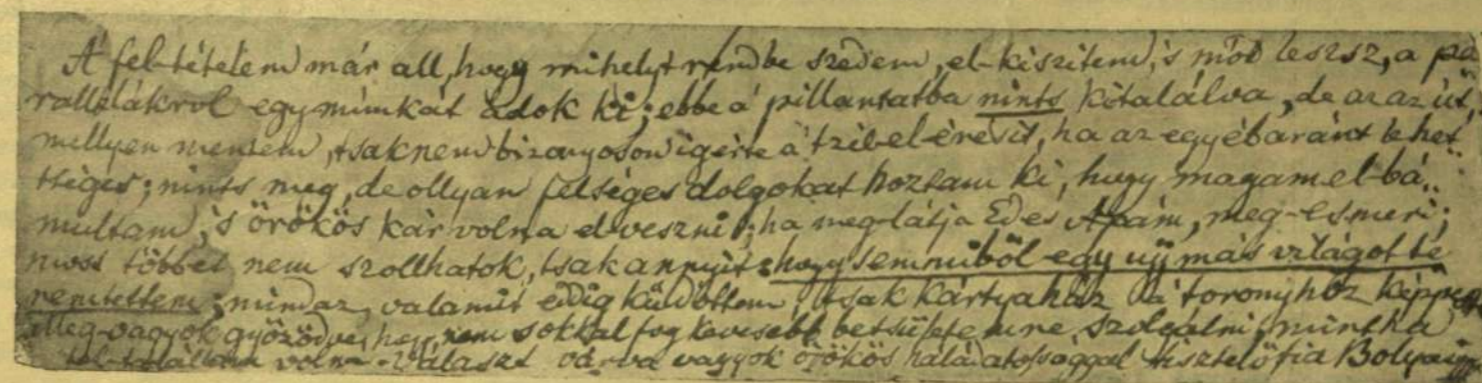 A' fel-tételem már áll, hogy mihelyt rendbe szedem, el-készitem, 's mód lessz, a pa-
rallelákrol egy munkát adok ki; ebbe a' pillanatba nints kitalálva, de az az út,
mellyen mentem, tsaknem bizonyoson igérte a' tzél el-érését, ha az egyébaránt lehet-
séges; nints meg, de ollyan felséges dolgokat hoztam ki, hogy magam el-bá-
multam, 's örökös kár volna el veszni; ha meg-látja Édes Apám, meg-esmeri;
most többet nem szollhatok, tsak annyit: hogy semmiből egy ujj más világot te-
remtettem; mind az, valamit eddig küldöttem, tsak kártyaház a' toronyhoz képpest.
Meg-vagyok győződve, hogy nem sokkal fog kevesebb betsületemre szolgálni, mintha
fel-találtam volna. Választ várva vagyok örökös háládatossággal tisztelő fia Bolyai